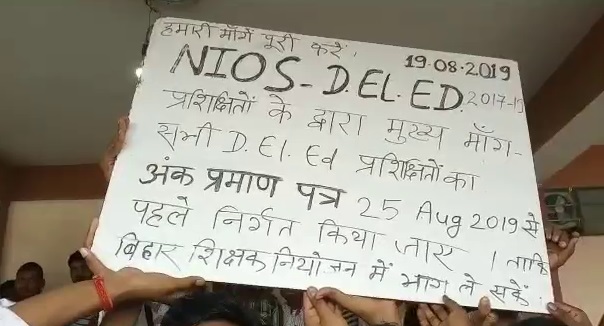 हमारी माँगें पूरी करें।
19.08.2019
NIOS-D.EL.ED. 2017-19
प्रशिक्षितों के द्वारा मुख्य माँग-
सभी D.El.Ed प्रशिक्षितों का
अंक प्रमाण पत्र 25 Aug 2019 से
पहले निर्गत किया जाए । ताकि
बिहार शिक्षक नियोजन में भाग ले सकें.